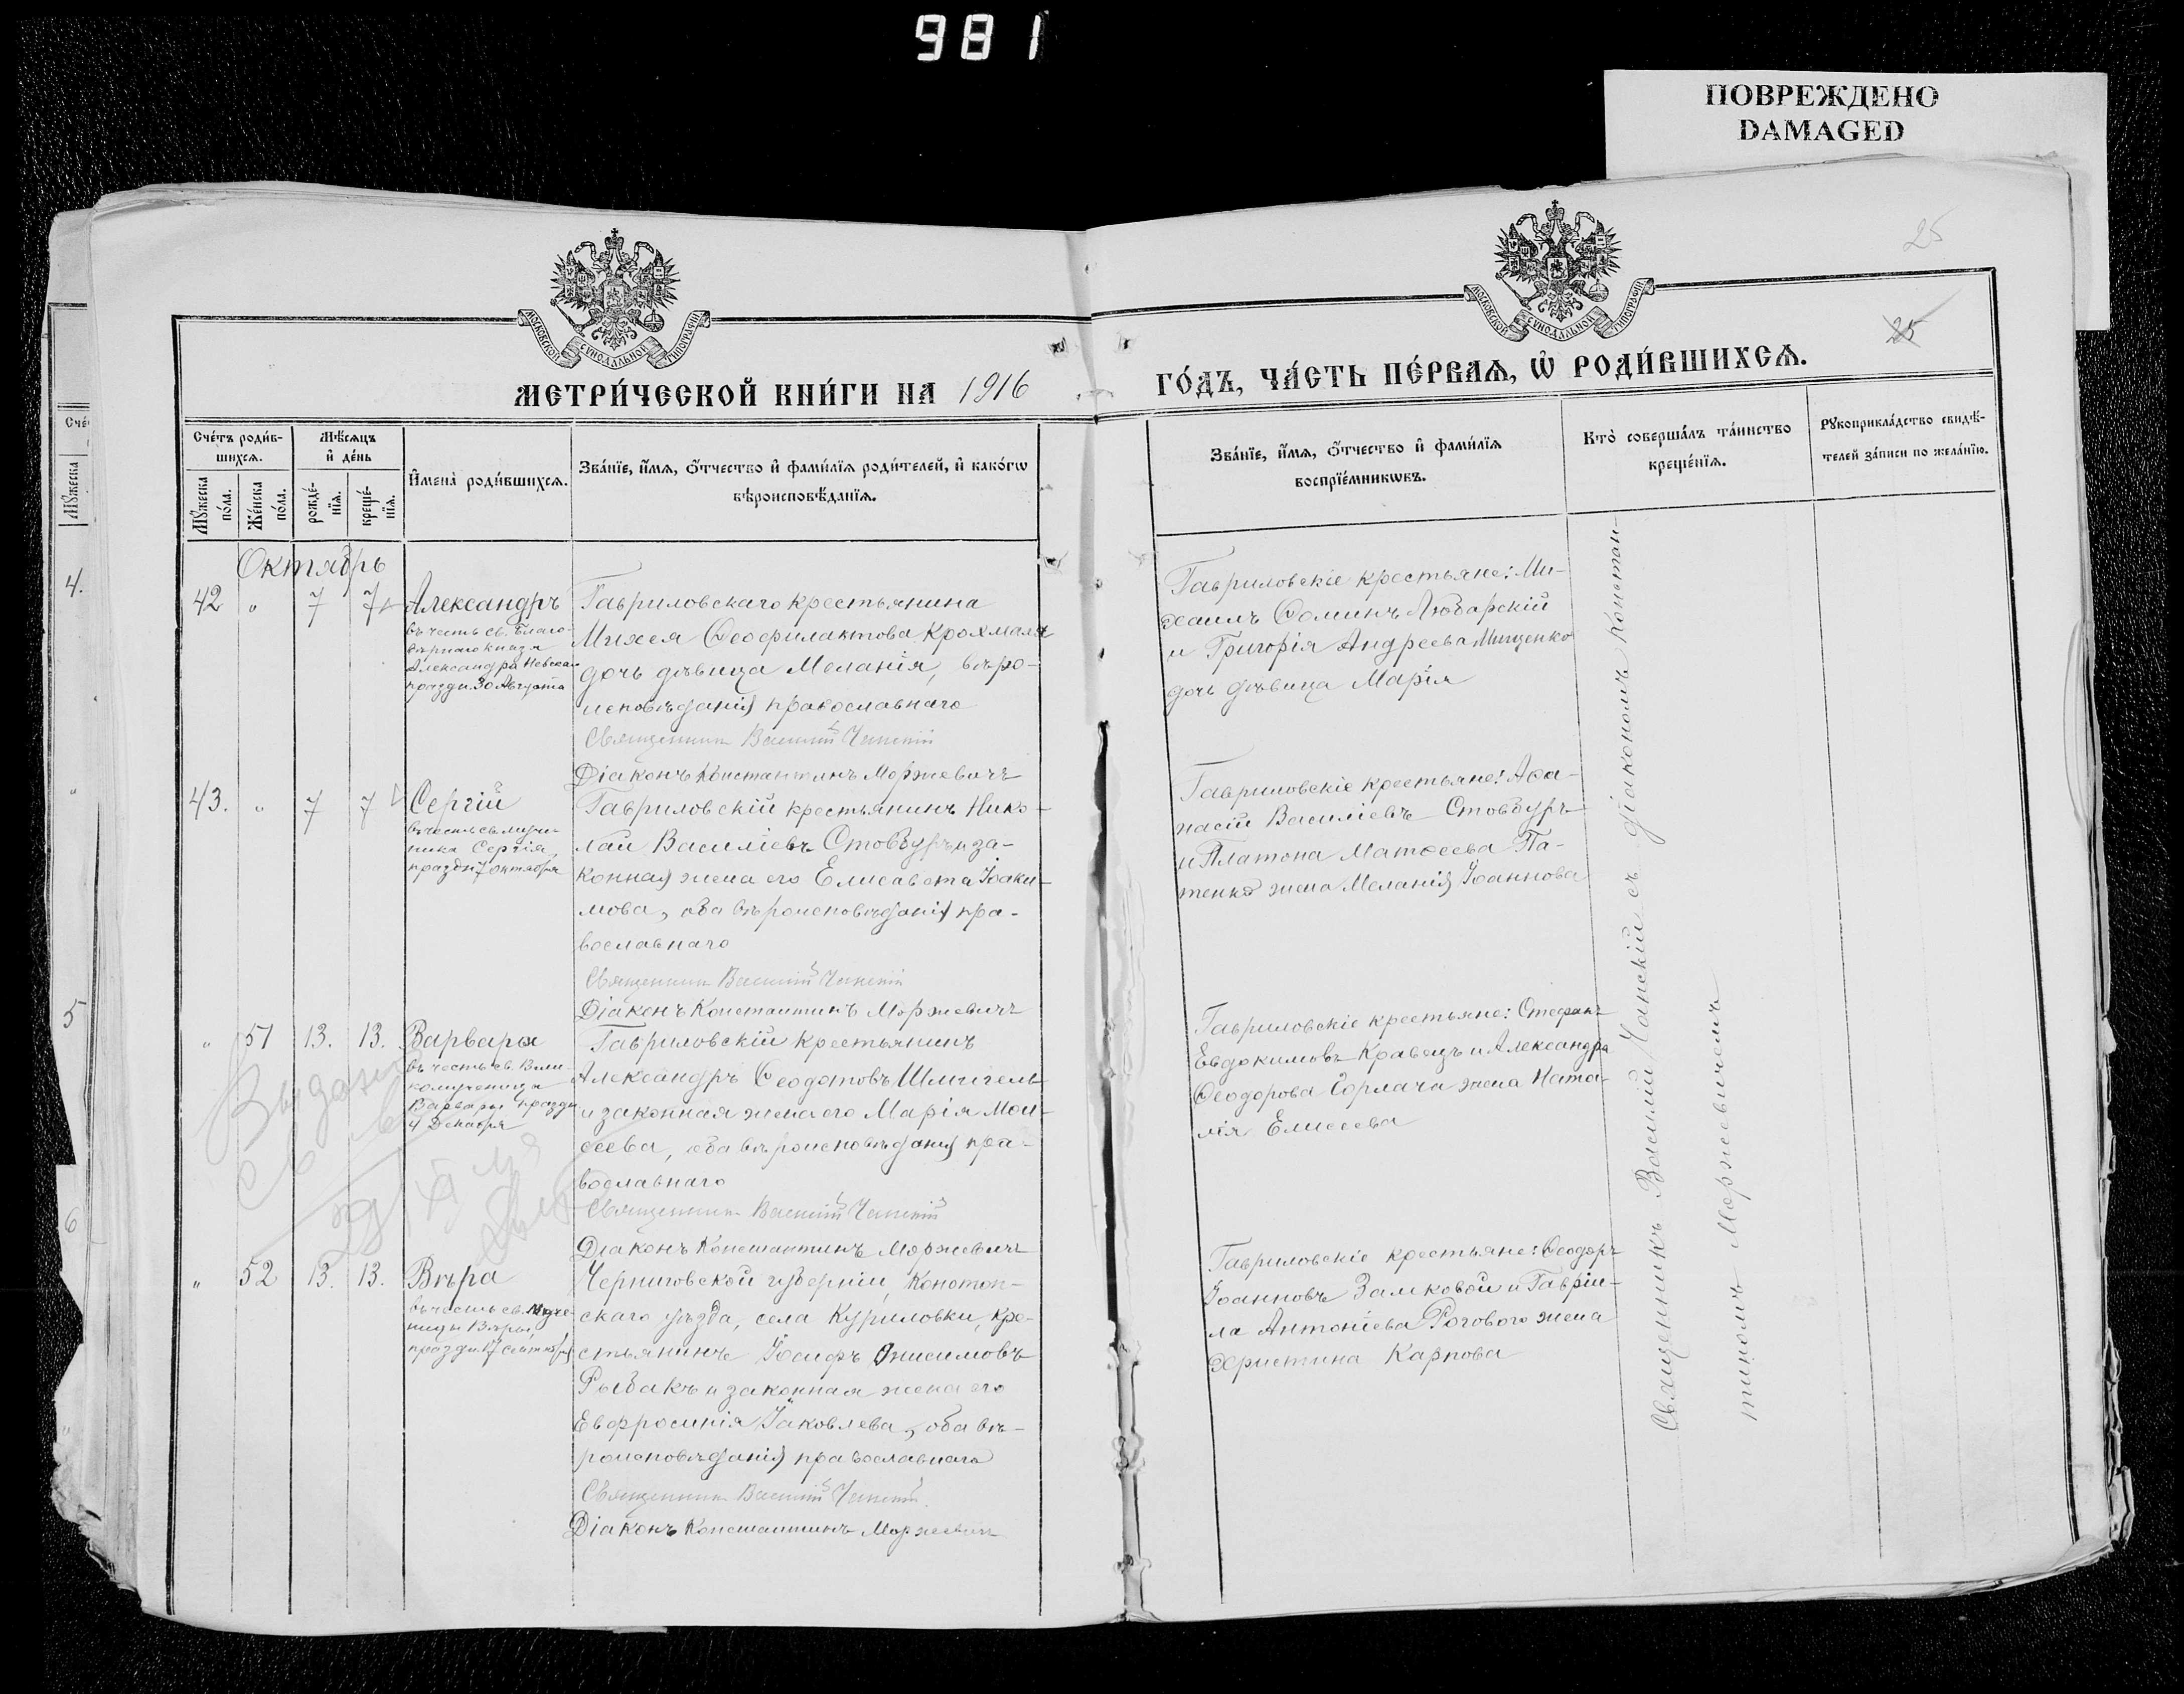 981
ПОВРЕЖДЕНО
DAMAGED
25
25
МОСКОВСКОЙ СУНОДАЛЬНОЙ ТИПОГРАФІИ
МОСКОВСКОЙ СУНОДАЛЬНОЙ ТИПОГРАФІИ
МЕТРИ́ЧЕСКОЙ КНИ́ГИ НА 1916
ГО́ДЪ, ЧА́СТЬ ПЕ́РВАѦ, Ѡ РОДИ́ВШИХСѦ.
Сче́тъ роди́в-
шихсѧ.
Мѣ́сѧцъ
и҆ де́нь
Мꙋ́жеска
по́ла.
Же́нска
по́ла.
рожде́-
нїѧ.
креще́-
нїѧ.
И҆мена̀ роди́вшихсѧ.
Зва́нїе, и҆́мѧ, ѻ҆́тчество и҆ фами́лїѧ роди́телей, и҆ како́гѡ
вѣроисповѣ́данїѧ.
Зва́нїе, и҆́мѧ, ѻ҆́тчество и҆ фами́лїѧ
воспрїе́мникѡвъ.
Кто̀ соверша́лъ та́инство
креще́нїѧ.
Рꙋкоприкла́дство свидѣ́-
телей за́писи по жела́нїю.
Мꙋ́жеска
4.
5
6
Октябрь
42 " 7 7 Александръ
въ честь св. Благо-
вѣрнаго князя
Александра Невскаго
праздн. 30 Августа
Гавриловскаго крестьянина
Михея Ѳеофилактова Крохмаля
дочь дѣвица Меланія, вѣро-
исповѣданія православнаго
Священникъ Василій Чапскій
Діаконъ Константинъ Моржевичъ
Гавриловскіе крестьяне: Ми-
хаилъ Ѳоминъ Любарскій
и Григорія Андреева Мищенко
дочь дѣвица Марія
43. " 7 7 Сергій
въ честь св. муче-
ника Сергія,
праздн. 7 октября
Гавриловскій крестьянинъ Нико-
лай Василіевъ Стовбуръ и за-
конная жена его Елисавета Іоаки-
мова, оба вѣроисповѣданія пра-
вославнаго
Священникъ Василій Чапскій
Діаконъ Константинъ Моржевичъ
Гавриловскіе крестьяне: Аѳа-
насій Василіевъ Стовбуръ
и Платона Матѳеева Па-
тенко жена Меланія Іоаннова
" 51 13. 13. Варвара
въ честь св. Вели-
комученицы
Варвары праздн.
4 Декабря
Гавриловскій крестьянинъ
Александръ Ѳеодотовъ Шмигель
и законная жена его Марія Мои-
сеева, оба вѣроисповѣданія пра-
вославнаго
Священникъ Василій Чапскій
Діаконъ Константинъ Моржевичъ
Гавриловскіе крестьяне: Стефанъ
Евдокимовъ Кравецъ и Александра
Ѳеодорова Горлача жена Ната-
лія Елисеева
" 52 13. 13. Вѣра
въ честь св. Муче-
ницы Вѣры,
праздн. 17 сентября
Черниговской губерніи, Конотоп-
скаго уѣзда, села Куриловки, кре-
стьянинъ Іосифъ Онисимовъ
Рыбакъ и законная жена его
Евфросинія Іаковлева, оба вѣ-
роисповѣданія православнаго
Священникъ Василій Чапскій.
Діаконъ Константинъ Моржевичъ
Гавриловскіе крестьяне: Ѳеодоръ
Іоанновъ Замковой и Гаврі-
ла Антоніева Рогового жена
Христина Карпова
Священникъ Василій Чапскій съ діакономъ Констан-
тиномъ Моржевичемъ